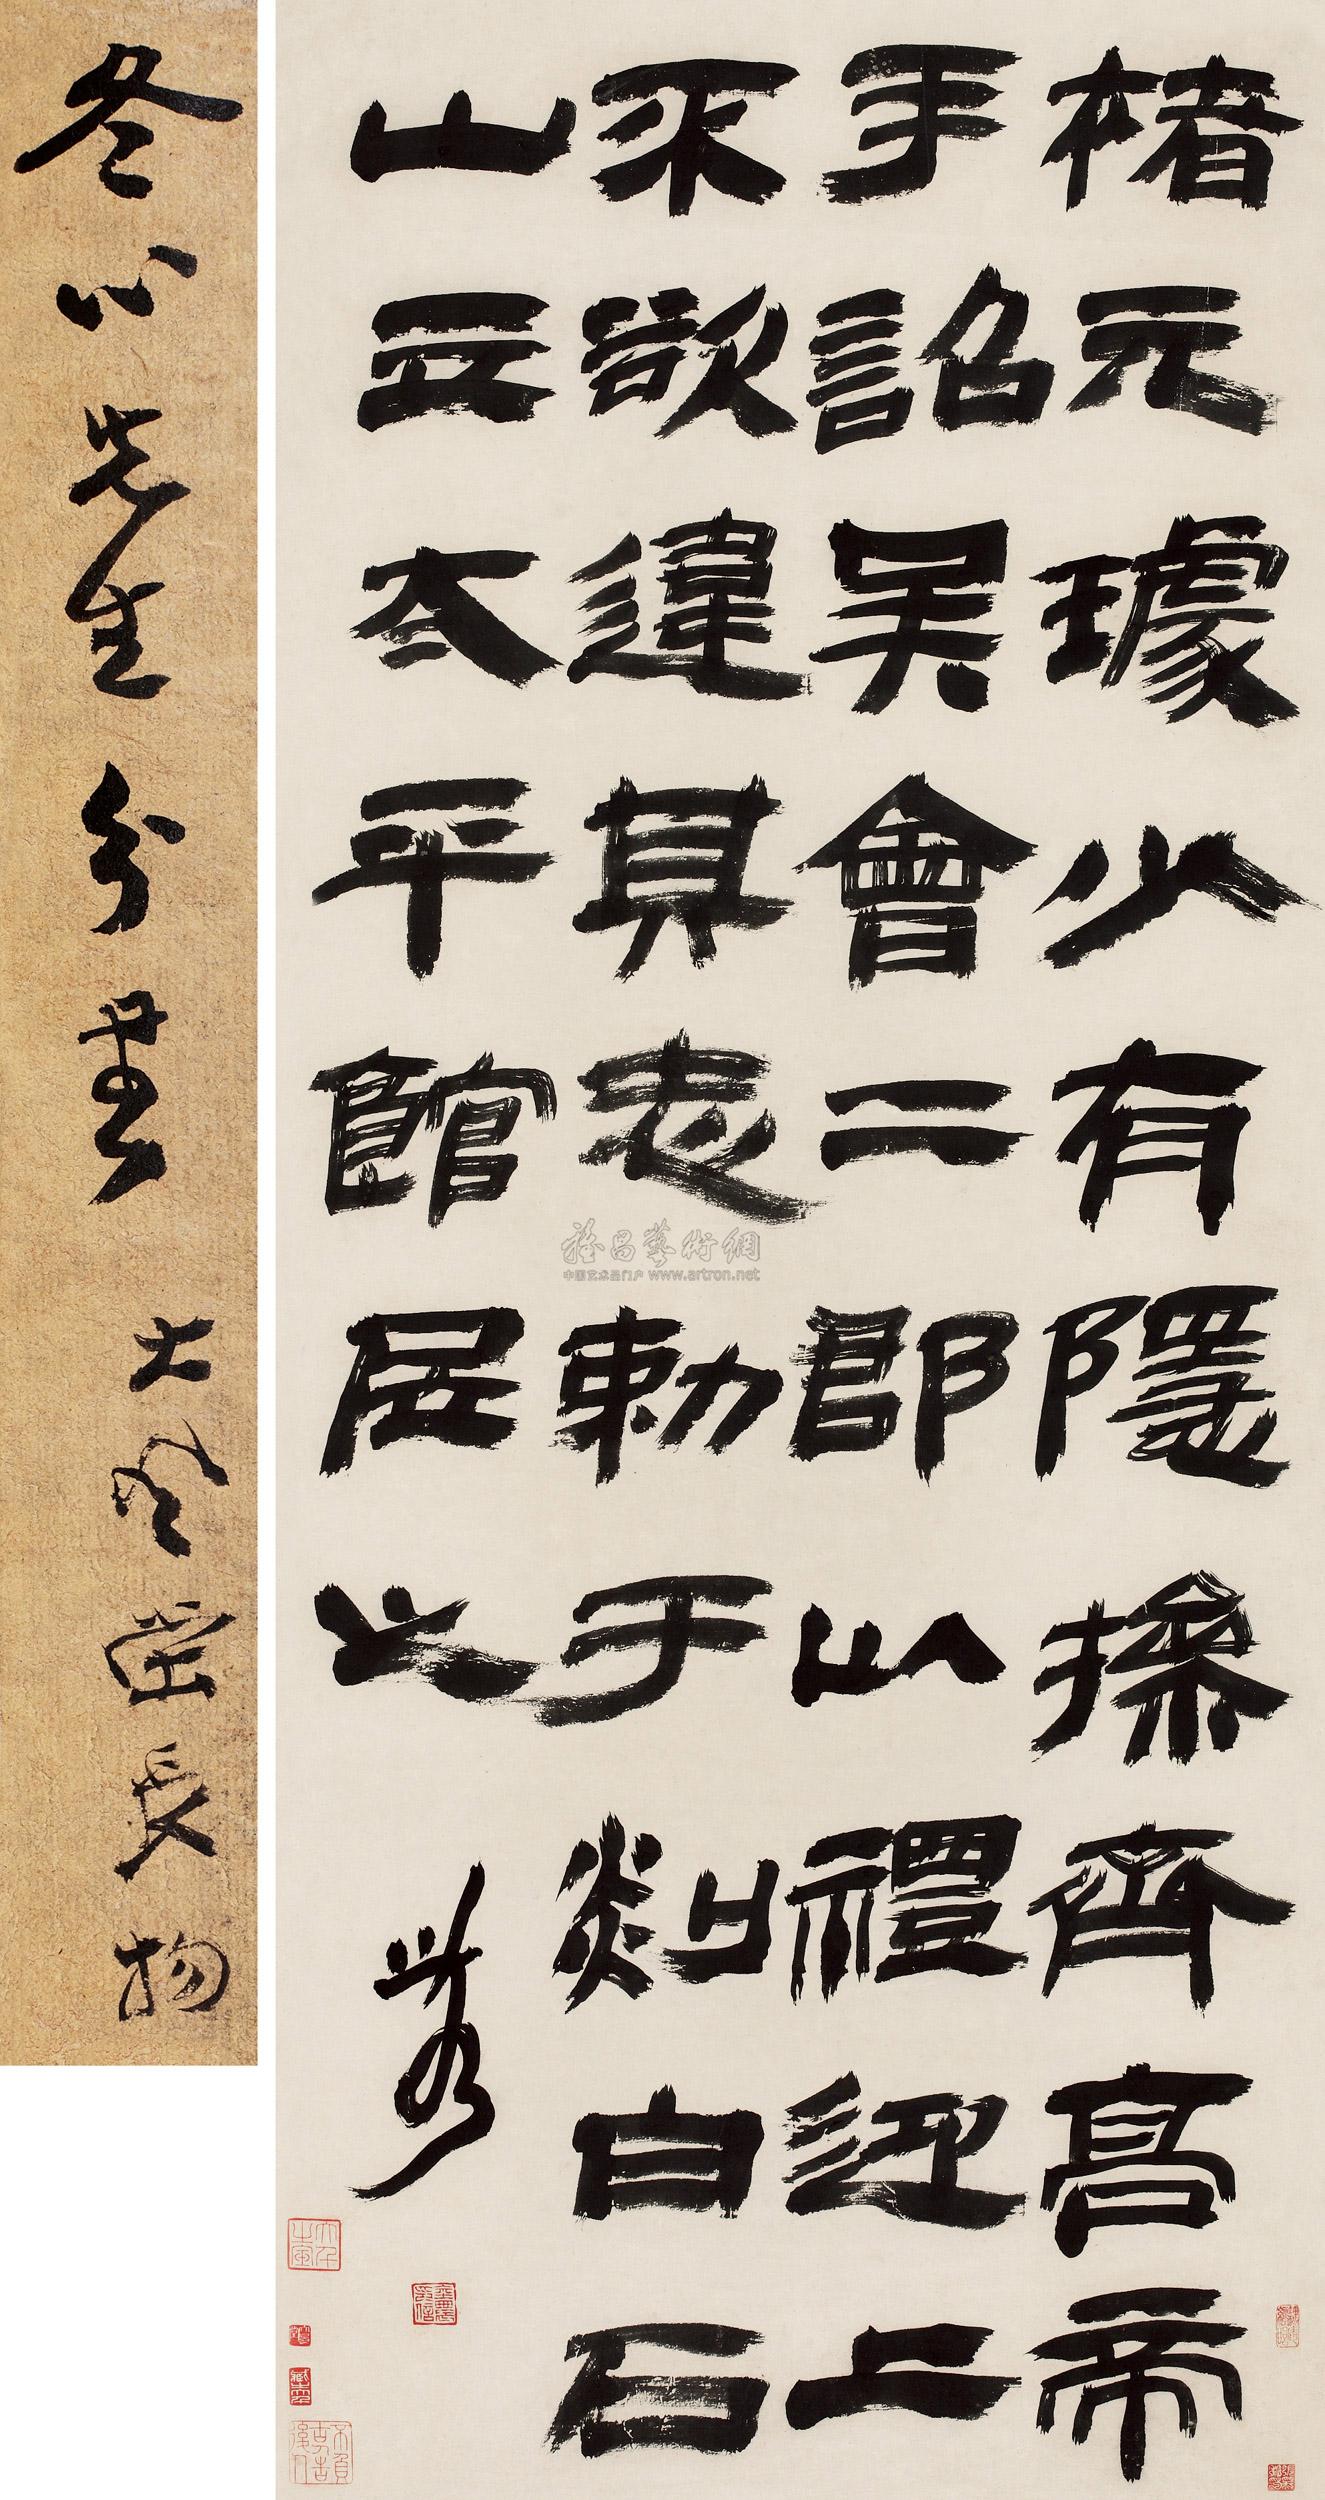 楮元璩少有隱操齊高帝
手詔吴會二郡以禮迎上
不欲違其志勅于剡白石
山立太平館居之
金農印信
冬心先生分書 大風堂長物
雅昌藝術網
中国艺术品门户 www.artron.net